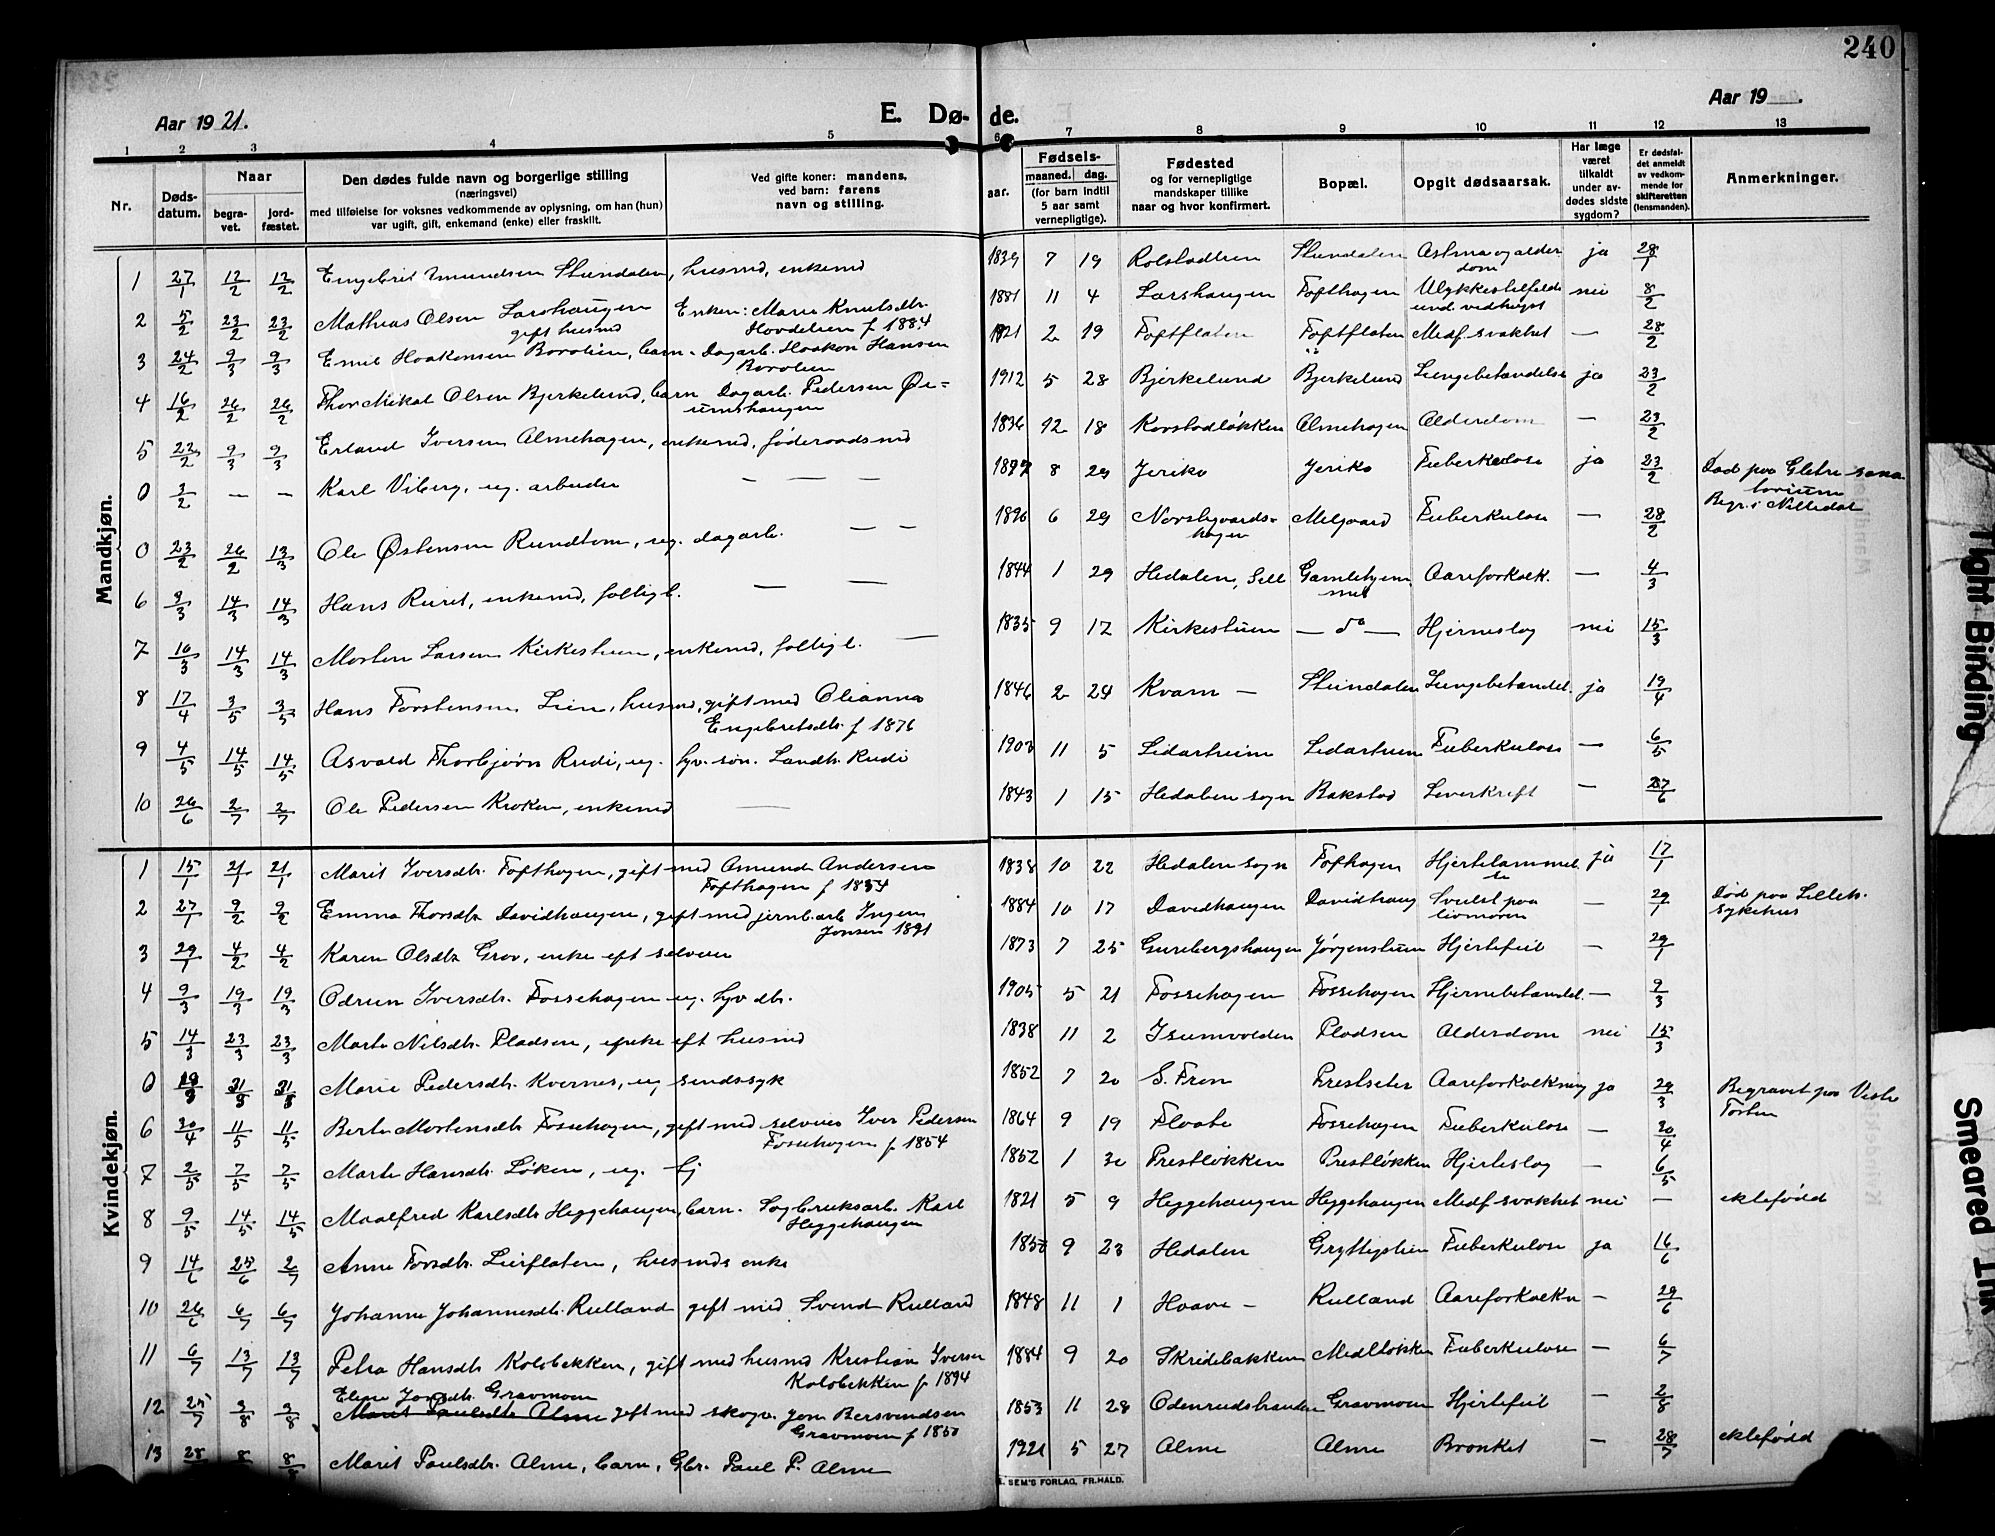 240
Aar 1921.
E. Dø- de.
Aar 19
1 2 3 4 5 6 7 8 9 10 11 12 13
Nr.
Døds-datum.
Naar
begra-vet.
jord-fæstet.
Den dødes fulde navn og borgerlige stilling
(næringsvei)
med tilføielse for voksnes vedkommende av oplysning, om han (hun)
var ugift, gift, enkemand (enke) eller fraskilt.
Ved gifte koner: mandens,
ved barn: farens
navn og stilling.
aar.
Fødsels-
maaned. dag.
(for barn indtil
5 aar samt
vernepligtige).
Fødested
og for vernepligtige
mandskaper tillike
naar og hvor konfirmert.
Bopæl.
Opgit dødsaarsak.
Har læge
været
tilkaldt
under av-
dødes sidste
sygdom?
Er dødsfal-
det anmeldt
av vedkom-
mende for
skifteretten
(lensmanden).
Anmerkninger.
Mandkjøn.
1 27/1 12/2 12/2 Engebret Amundsen Stendalen, husmd, enkemd 1839 7 19 Rolstadlien Stendalen Astma og alder
dom ja 28/1
2 5/2 23/2 23/2 Mathias Olsen Larshaugen Enken: Marie Knutsdtr.
gift husmd Hovdelien f 1884 1881 11 4 Larshaugen Tofthagen Ulykkestilfelde
und. vedhugst nei 8/2
3 24/2 9/3 9/3 Emil Haakonsen Borolien, barn - Dagarb. Haakon Hansen
Borolien 1921 2 19 Toftflaten Toftflaten Medf. svakhet — 28/2
4 16/2 26/2 26/2 Thor Mikal Olsen Bjerkelund, barn Dagarb. Pedersen Øi-
umshaugen 1912 5 28 Bjerkelund Bjerkelund Lungebetændelse ja 23/2
5 23/2 9/3 9/3 Erland Iversen Almehagen, enkemd, føderaadsmd 1836 12 18 Korstadløkken Almehagen Alderdom — 23/2
0 3/2 — — Karl Viberg, ug. arbeider — — — 1892 8 29 Jeriko Jeriko Tuberkulose ja 23/2 Død paa Glitre sana
torium
Begr. i Nittedal
0 23/2 26/2 13/3 Ole Østensen Rundtom, ug. dagarb. — — 1896 6 29 Norstegaards-
hagen Melgaard Tuberkulose — 28/2
6 3/3 14/3 14/3 Hans Ruret, enkemd, fattigl. — — 1844 1 29 Hedalen, Sell Gamlehjem
met Aareforkalk. — 4/3
7 10/3 14/3 14/3 Morten Larsen Kirkestuen, enkemd, fattigl. — 1835 9 12 Kirkestuen — do — Hjerneslag nei 15/3
8 17/4 3/5 3/5 Hans Torstensen Lien, husmd, gift med Olianna
Engebretsdtr. f 1876 1846 2 24 Kvam — Stendalen Lungebetændel. ja 19/4
9 4/5 14/5 14/5 Asvald Thorbjørn Rudi, ug. tyv. søn. Landh. Rudi 1903 11 5 Lidarheim Lidarheim Tuberkulose — 6/5
10 26/6 2/7 2/7 Ole Pedersen Kroken, enkemd — 1843 1 15 Hedalen sogn Bakstad Leverkræft — 27/6
Kvindekjøn.
1 15/1 21/1 21/1 Marit Iversdtr. Tofthagen, gift med Amund Andersen
Tofthagen f 1834 1838 10 22 Hedalen sogn Tofthagen Hjertelammel
se ja 17/1
2 27/1 9/2 9/2 Emma Thorsdtr. Davidhaugen, gift med jernb.arb. Ingem
Jonsen 1891 1884 10 17 Davidhaugen Davidhaug Svulst paa
livmoren — 29/1 Død paa Lilleh.
sykehus
3 29/1 4/2 4/2 Karen Olsdtr. Grov, enke eft selveier 1873 7 25 Gurebergshaugen Jørgenstuen Hjertefeil — 29/1
4 9/3 19/3 19/3 Odrun Iversdtr. Fossehagen ug. tyv dtr. 1905 5 21 Fossehagen Fossehagen Hjernebetændel. — 9/3
5 14/3 23/3 23/3 Marte Nilsdtr. Pladsen, enke eft husmd 1838 11 2 Isumvolden Pladsen Aldersdom nei 15/3
0 31/3 31/3 Marie Pedersdtr. Kvernes, ug sindssyk 1852 7 20 S. Fron Prestseter Aareforkalkning ja 29/3 Begravet paa Vestre
Toten
6 30/4 11/5 11/5 Berte Mortensdtr. Fossehagen, gift med selveier Iver Pedersen
Fossehagen f 1854 1864 9 19 Flaate Fossehagen Tuberkulose — 30/4
7 2/5 7/5 7/5 Marte Hansdtr. Løken, ug. tj 1852 1 30 Prestløkken Prestløkken Hjerteslag — 6/5
8 9/5 14/5 14/5 Maalfred Karlsdtr. Heggehaugen, barn. Sagbruksarb. Karl
Heggehaugen 1821 5 9 Heggehaugen Heggehaugen Medf svakhet nei — ektefødd
9 14/6 25/6 2/7 Anne Torsdtr. Lieflaten, husmds enke 9 23 Hedalen Gryttingslien Tuberkulose ja 16/6
10 26/6 6/7 6/7 Johanne Johannesdtr. Rulland gift med Svend Rulland 1848 11 1 Haave — Rulland Aareforkalkn — 29/6
11 6/7 13/7 13/7 Petra Hansdtr. Kolobekken, gift med husmd Kristian Iversen
Kolobekken f 1894 1884 9 20 Skridebakken Medlløkken Tuberkulose — 6/7
12 25/7 3/8 3/8 Eline Jonsdtr. Gravmoen
Marit Paulsdtr. Alme gift med skogv. Jon Bersvendsen
Gravmoen f 1850 1853 11 28 Odenrudstranden Gravmoen Hjertefeil — 2/8
13 28 8 8/8 Marit Paulsdtr. Alme, barn, Gbr. Paul P. Alme 1921 5 27 Alme Alme Bronkit — 28/7 ektefødd
SEM'S FORLAG, FR.HALD.
Tight Binding
Smeared Ink